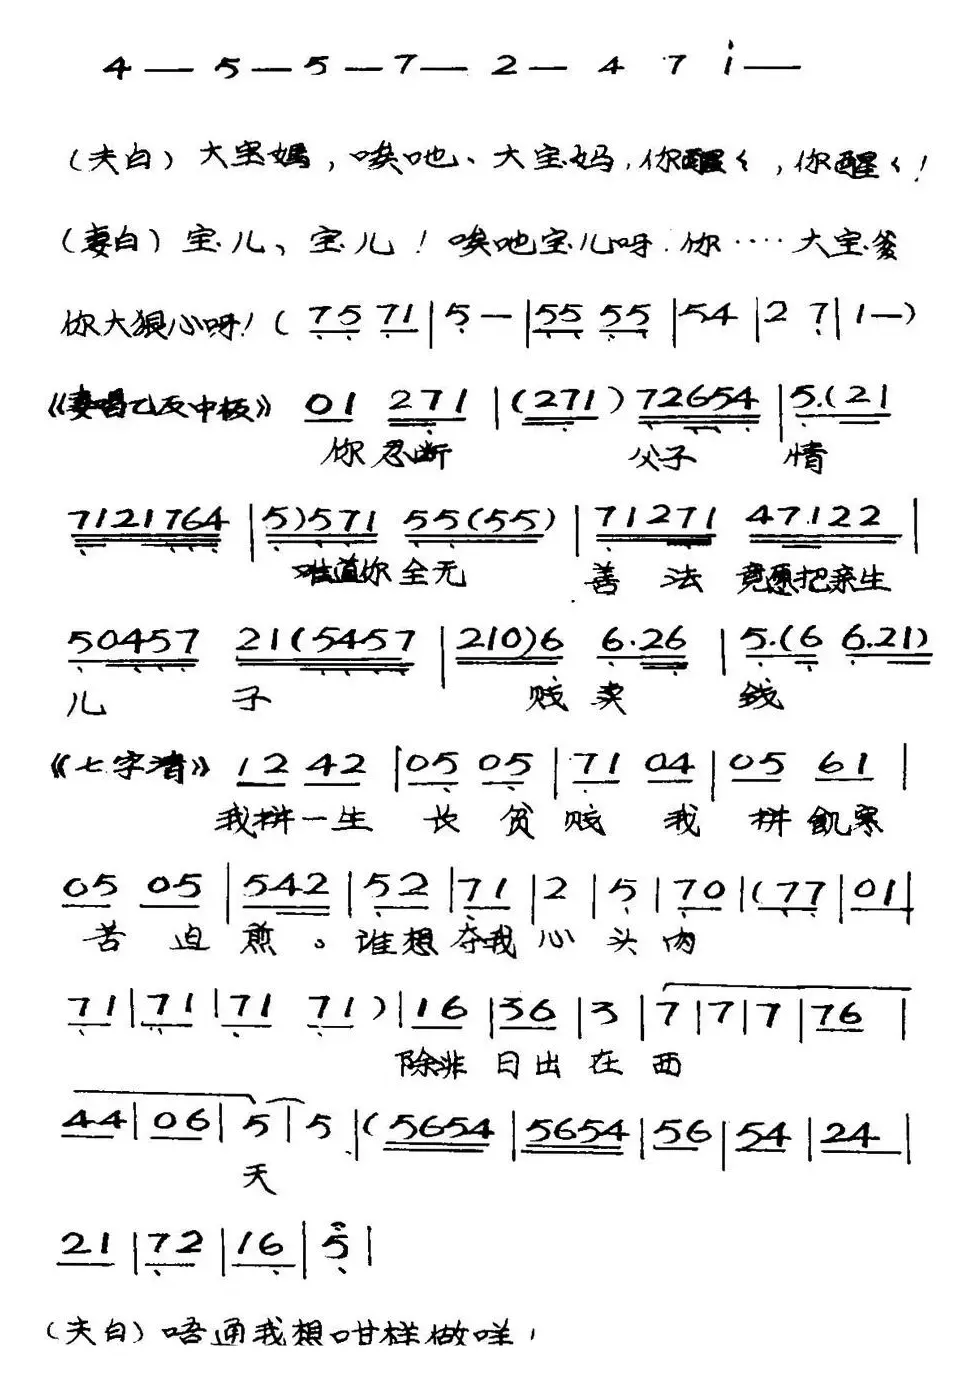 4 — 5 — 5 — 7 — 2 — 4 7 i —
(夫白) 大宝妈，唉吔、大宝妈，你醒く，你醒く！
(妻白) 宝儿、宝儿！唉吔宝儿呀．你····大宝爹
你大狠心呀！( 75 71 | 5 — | 55 55 | 54 | 2 7 | 1 — )
《妻唱乙反中板》 01 271 | (271) 72654 | 5.(21
你忍断 父子 情
7121764 | 5)571 55(55) | 71271 47122 |
难道你 全无 善 法 竟愿把亲生
50457 21(5457 | 210)6 6·26 | 5.(6 6.21)
儿 子 贱 卖 钱
《七字清》 12 42 | 05 05 | 71 04 | 05 61 |
我拼一生 长 贫 贱 我 拼 飢寒
05 05 | 542 | 52 | 71 | 2 | 5 | 70 | (77 | 01 |
苦 迫 煎 。谁想夺我心头肉
71 | 71 | 71 71 ) | 16 | 36 | 3 | 7 | 7 | 7 | 76 |
除非 日出 在 西
44 | 06 | 5 | 5 | (5654 | 5654 | 56 | 54 | 24 |
天
21 | 72 | 16 | 5 |
(夫白) 唔通我想咁样做咩，